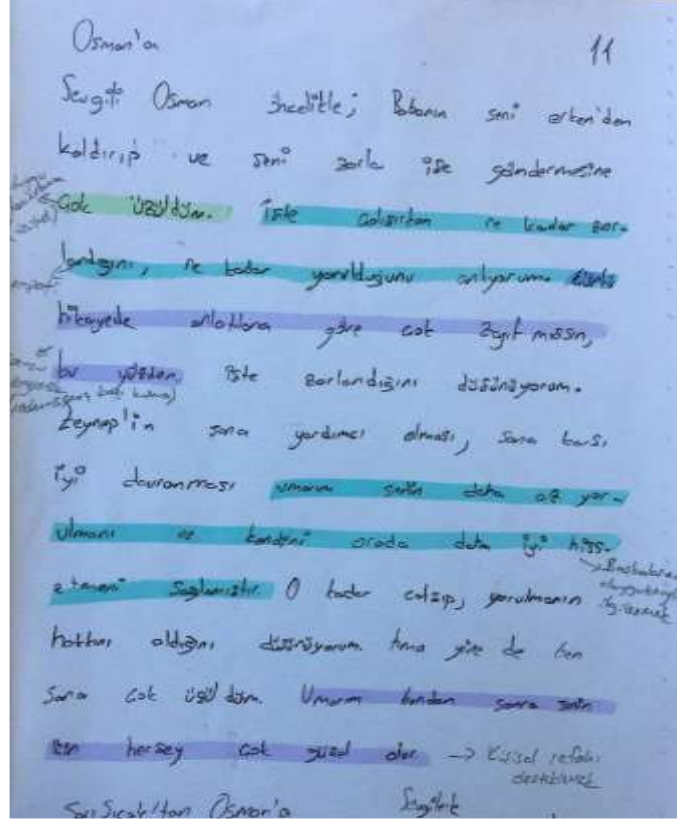 Osman'a
11
Sevgili Osman öncelikle; Babanın seni erken'den
kaldırıp ve seni zorla işe göndermesine
çok üzüldüm. İşte çalışırken ne kadar zor-
landığını, ne kadar yorulduğunu anlıyorum.
hikayede anlatılana göre çok zayıfmışsın,
bu yüzden işte zorlandığını düşünüyorum.
Zeynep'in sana yardımcı olması, sana karşı
iyi davranması umarım senin daha az yor-
ulmanı ve kendini orada daha iyi hiss-
etmeni sağlamıştır. O kadar çalışıp, yorulmanın
hakkını aldığını düşünüyorum. Ama yine de ben
sana çok üzüldüm. Umarım bundan sonra senin
için herşey çok güzel olur → kişisel refahı
desteklemek
Sarı Sıcak'tan Osman'a